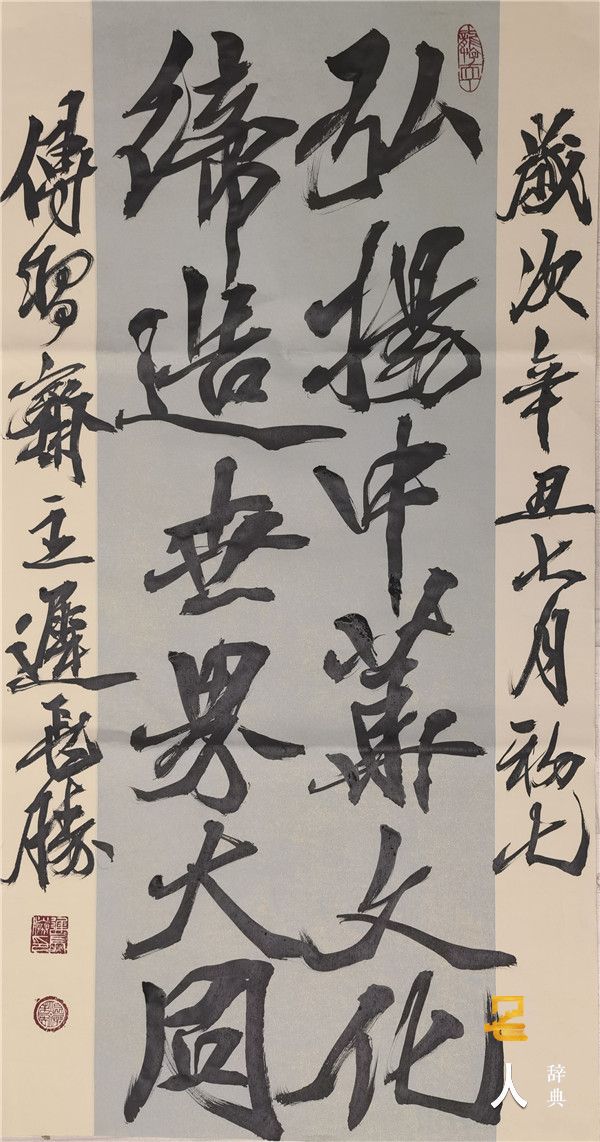 歲次辛丑七月初七
弘揚中華文化
締造世界大同
傅習齋主遲長勝
名人
辞典